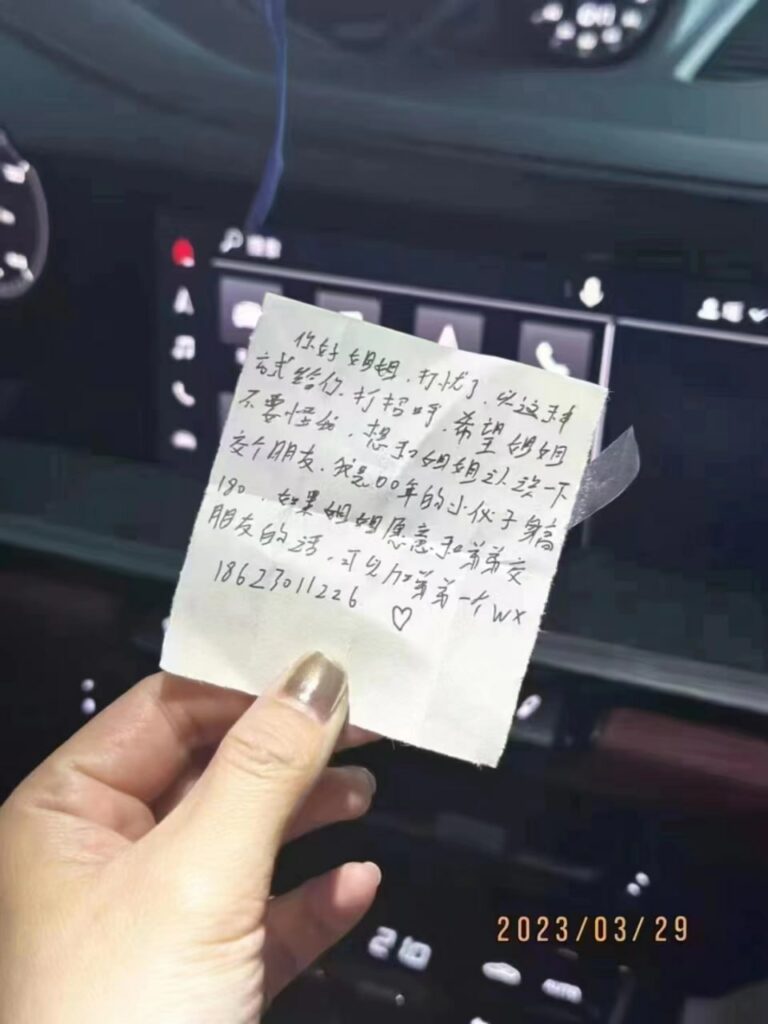 你好姐姐，打扰了，以这种
方式给你打招呼，希望姐姐
不要怪俗，想和姐姐认识一下
交个朋友，我是00年的小伙子身高
180，如果姐姐愿意和弟弟交
朋友的话，可以加弟弟一个WX
18623011226 ♡
21.0
AUTO
2023/03/29